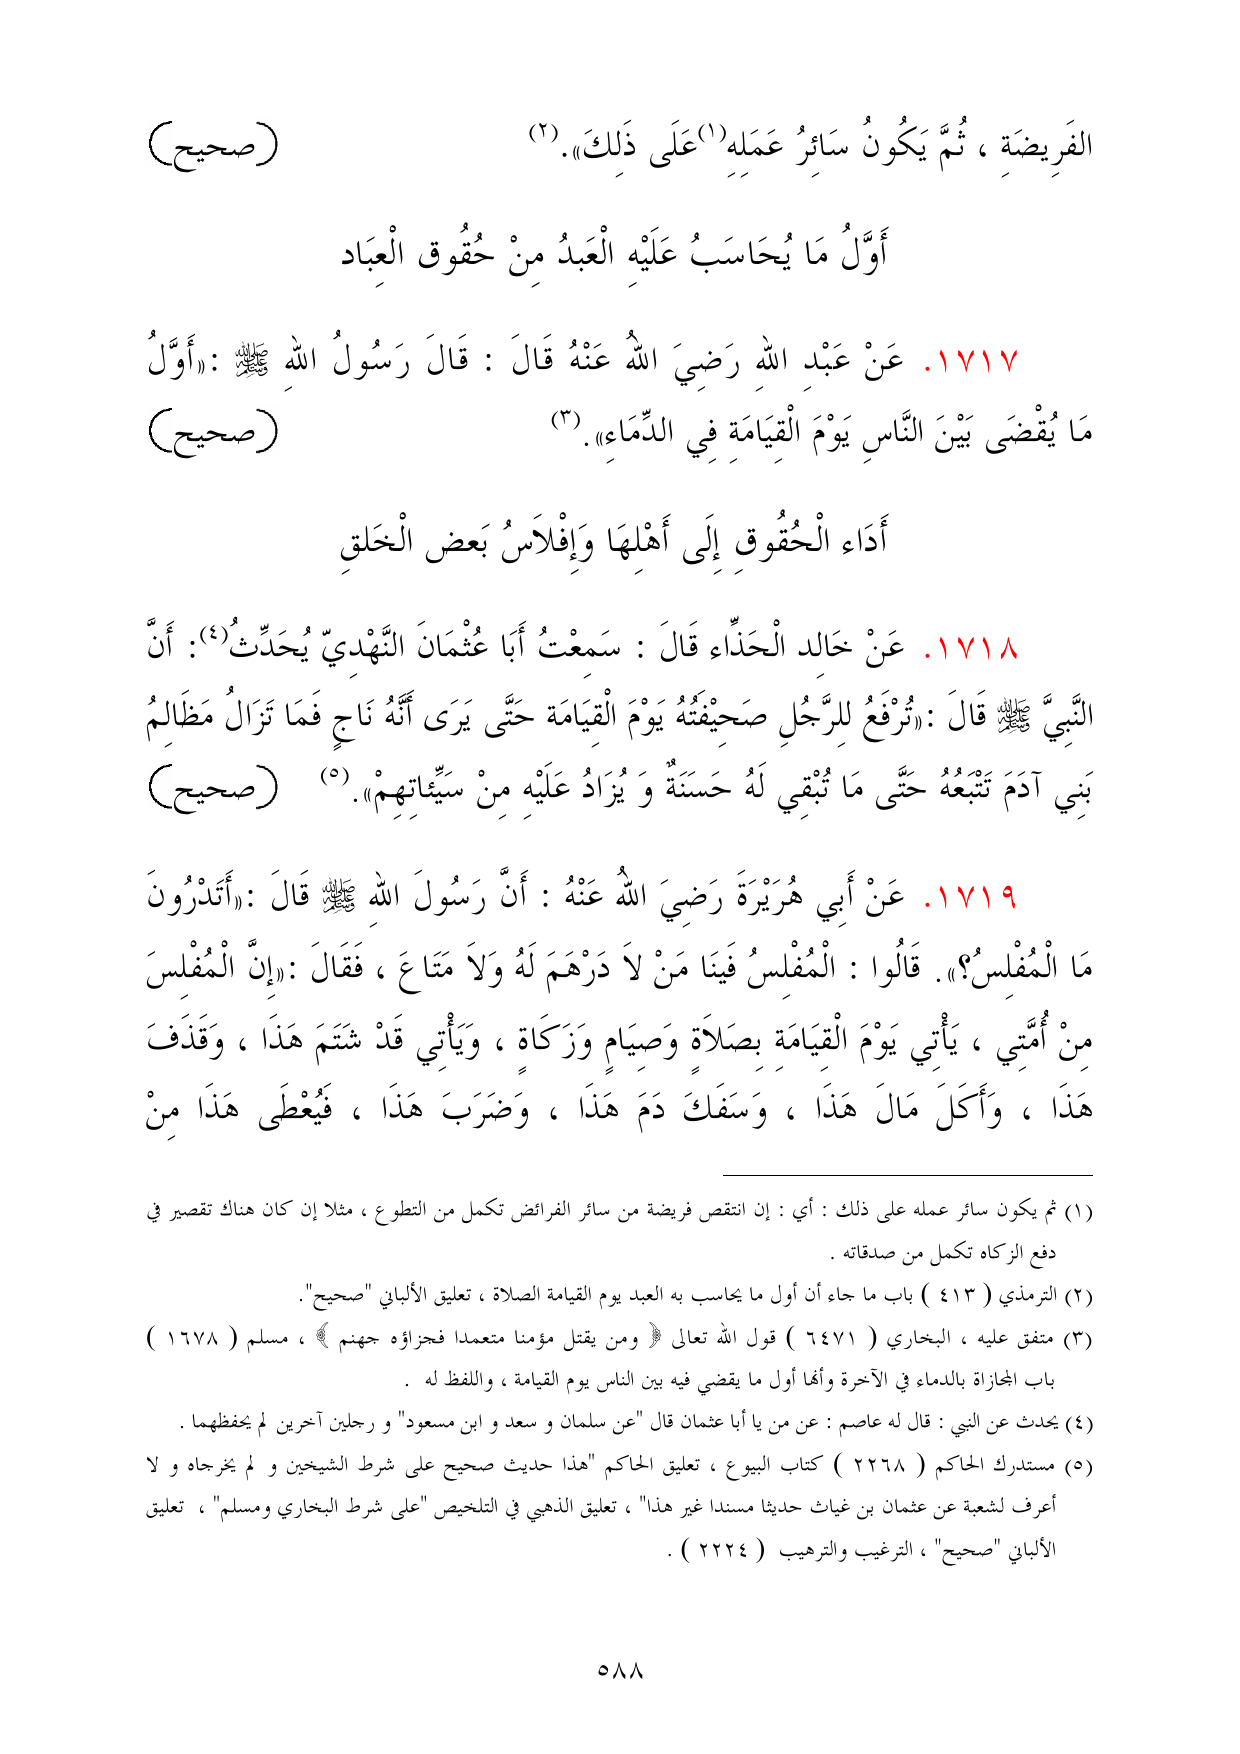 الفَرِيضَةِ ، ثُمَّ يَكُونُ سَائِرُ عَمَلِهِ(١)عَلَى ذَلِكَ».(٢) (صحيح)
أَوَّلُ مَا يُحَاسَبُ عَلَيْهِ الْعَبدُ مِنْ حُقُوق الْعِبَاد
١٧١٧. عَنْ عَبْدِ اللهِ رَضِيَ اللهُ عَنْهُ قَالَ : قَالَ رَسُولُ اللهِ ﷺ :«أَوَّلُ
مَا يُقْضَى بَيْنَ النَّاسِ يَوْمَ الْقِيَامَةِ فِي الدِّمَاءِ».(٣) (صحيح)
أَدَاء الْحُقُوقِ إِلَى أَهْلِهَا وَإِفْلاَسُ بَعض الْخَلقِ
١٧١٨. عَنْ خَالِد الْحَذِّاء قَالَ : سَمِعْتُ أَبَا عُثْمَانَ النَّهْدِيّ يُحَدِّثُ(٤): أَنَّ
النَّبِيَّ ﷺ قَالَ :«تُرْفَعُ لِلرَّجُلِ صَحِيْفَتُهُ يَوْمَ الْقِيَامَة حَتَّى يَرَى أَنَّهُ نَاجٍ فَمَا تَزَالُ مَظَالِمُ
بَنِي آدَمَ تَتْبَعُهُ حَتَّى مَا تُبْقِي لَهُ حَسَنَةٌ وَ يُزَادُ عَلَيْهِ مِنْ سَيِّئاتِهِمْ».(٥) (صحيح)
١٧١٩. عَنْ أَبِي هُرَيْرَةَ رَضِيَ اللهُ عَنْهُ : أَنَّ رَسُولَ اللهِ ﷺ قَالَ :«أَتَدْرُونَ
مَا الْمُفْلِسُ؟». قَالُوا : الْمُفْلِسُ فَينَا مَنْ لاَ دَرْهَمَ لَهُ وَلاَ مَتَاعَ ، فَقَالَ :«إِنَّ الْمُفْلِسَ
مِنْ أُمَّتِي ، يَأْتِي يَوْمَ الْقِيَامَةِ بِصَلاَةٍ وَصِيَامٍ وَزَكَاةٍ ، وَيَأْتِي قَدْ شَتَمَ هَذَا ، وَقَذَفَ
هَذَا ، وَأَكَلَ مَالَ هَذَا ، وَسَفَكَ دَمَ هَذَا ، وَضَرَبَ هَذَا ، فَيُعْطَى هَذَا مِنْ
(١) ثم يكون سائر عمله على ذلك : أي : إن انتقص فريضة من سائر الفرائض تكمل من التطوع ، مثلا إن كان هناك تقصير في
دفع الزكاه تكمل من صدقاته .
(٢) الترمذي ( ٤١٣ ) باب ما جاء أن أول ما يحاسب به العبد يوم القيامة الصلاة ، تعليق الألباني "صحيح".
(٣) متفق عليه ، البخاري ( ٦٤٧١ ) قول الله تعالى ﴿ ومن يقتل مؤمنا متعمدا فجزاؤه جهنم ﴾ ، مسلم ( ١٦٧٨ )
باب المجازاة بالدماء في الآخرة وأنها أول ما يقضي فيه بين الناس يوم القيامة ، واللفظ له .
(٤) يحدث عن النبي : قال له عاصم : عن من يا أبا عثمان قال "عن سلمان و سعد و ابن مسعود" و رجلين آخرين لم يحفظهما .
(٥) مستدرك الحاكم ( ٢٢٦٨ ) كتاب البيوع ، تعليق الحاكم "هذا حديث صحيح على شرط الشيخين و لم يخرجاه و لا
أعرف لشعبة عن عثمان بن غياث حديثا مسندا غير هذا" ، تعليق الذهبي في التلخيص "على شرط البخاري ومسلم" ، تعليق
الألباني "صحيح" ، الترغيب والترهيب ( ٢٢٢٤ ) .
٥٨٨